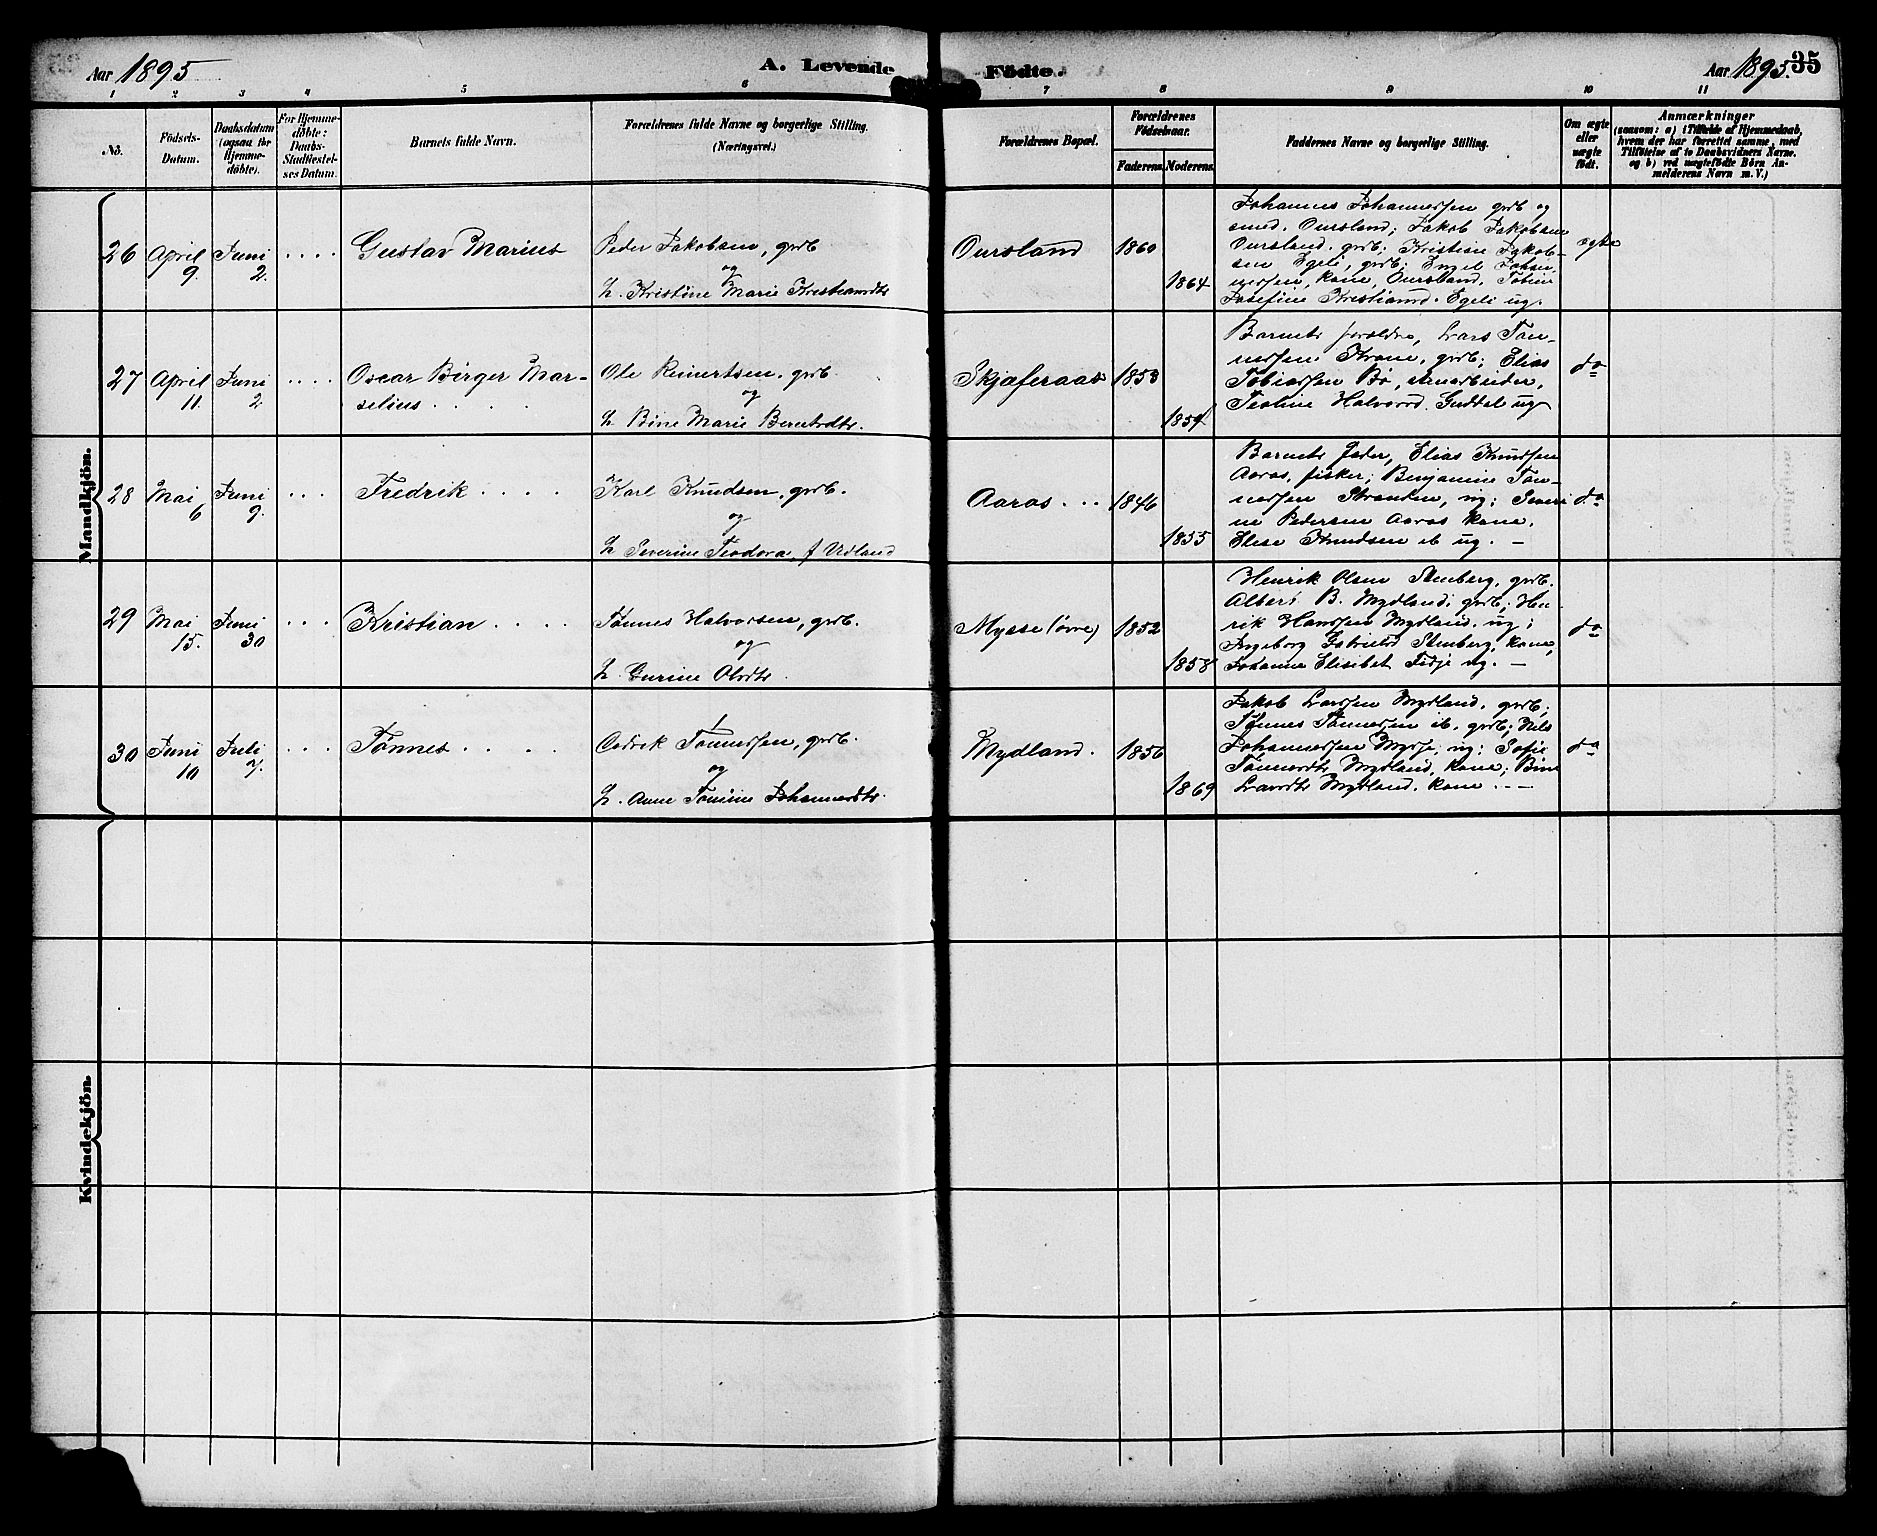 Aar 1895
A. Levende
Fødte.
Aar 1895. 35
1 2 3 4 5 6 7 8 9 10 11
No.
Födsels-
Datum.
Daabsdatum
(ogsaa for
Hjemme-
döbte).
For Hjemme-
döbte:
Daabs-
Stadfæstel-
ses Datum.
Barnets fulde Navn.
Forældrenes fulde Navne og borgerlige Stilling.
(Næringsvei.)
Forældrenes Bopæl.
Forældrenes
Födselsaar.
Faderens. Moderens.
Faddernes Navne og borgerlige Stilling.
Om ægte
eller
uægte
födt.
Anmærkninger
(saasom: a) i Tilfælde af Hjemmedaab,
hvem der har forrettet samme, med
Tilföielse af to Daabsvidners Navne.
og b) ved uægtefödte Börn An-
melderens Navn m. V.)
Mandkjön.
26 April 9. Juni 2. . . . . Gustav Marius
Peder Jakobsen, grdb
og
h. Kristine Marie Kristiansdtr
Oursland 1860 1864
Johannes Johannessen grdb og
smed. Oursland; Jakob Jakobsen
Oursland. grdb; Kristian Jakob-
sen Egeli, grdb; Engel Johan-
nessen, kone, Oursland,
Josefine Kristiansd. Egeli ug.
ægte
27 April 11. Juni 2 . . . . Oscar Birger Mar-
selius . . . .
Ole Reinertsen. grdb.
og
h Bine Marie Berntsdtr.
Skjæferaas 1853 1854
Barnets forældre, Lars Tøn-
nessen Krone, grdb; Elias
Tobiassen Bø,
Teoline Halvorsd. Guddal ug
do
28 Mai 6 Juni 9. . . . Fredrik . . . .
Karl Knudsen, grdb.
og
h Severine Teodora, f Udland
Aaros . . . 1846 1855
Barnets Fader, Elias Knudsen
Aaros, fisker; Benjamine Tøn-
nessen Stranden, ug; Severi
ne Pedersen Aaros kone.
Elise Knudsen ib ug. –
do
29 Mai 15. Juni 30 . . . Kristian . . . .
Tønnes Halvorsen, grdb.
og
h. Gurine Olsdtr.
Mysse (øvre) 1852 1858
Henrik Olsen Stenberg, grdb.
Albert B. Mydland, grdb; Hen
rik Hanssen Mydland. ug;
Ingeborg Gabrielsd Stenberg, kone,
Johanne Elisabet Tidje ug. –
do
30 Juni 10 Juli 7. . . . Tønnes . . . .
Tønnessen, grdb.
og
h. Anne Tomine Johannesdtr.
Mydland. 1856 1869
Jakob Larssen Mydland. grdb;
Tønnes Tønnessen ib. grdb; Nils
Johannessen Mysse, ug; Sofie
Tønnesdtr Mydland, kone; Bine
Larsdtr Mydland. kone . . –
do
Kvindekjön.